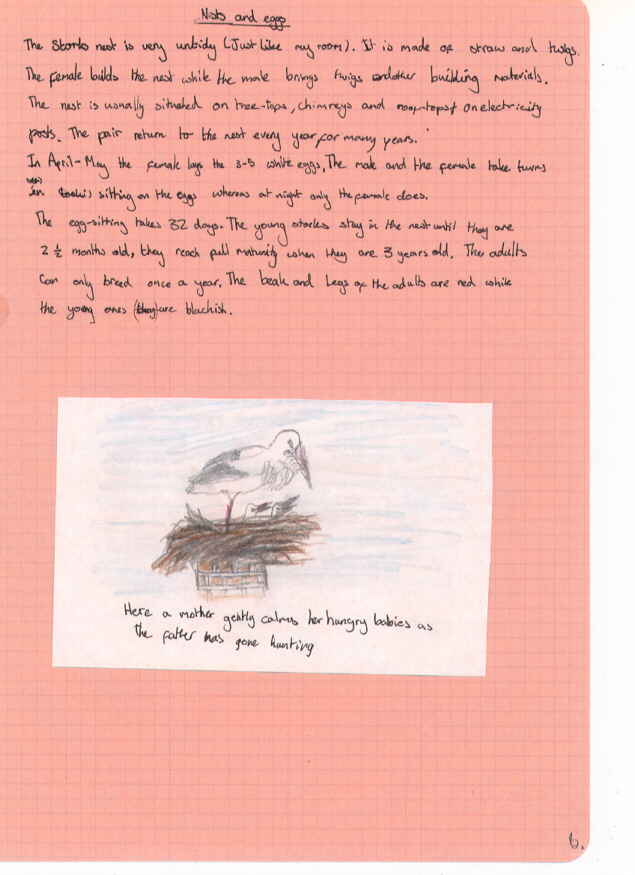 Nests and eggs
The Storks nest is very untidy (Just like my room). It is made of straw and twigs.
The female builds the nest while the male brings twigs and other building materials.
The nest is usually situated on tree-tops, chimneys and roof-tops of on electricity
posts. The pair return to the nest every year, for many years.
In April-May the female lays the 3-5 white eggs, The male and the female take turns
in sitting on the eggs whereas at night only the female does.
The egg-sitting takes 32 days. The young storks stay in the nest until they are
2 ½ months old, they reach full maturity when they are 3 years old. The adults
Can only breed once a year. The beak and Legs of the adults are red while
the young ones (they) are blackish.
Here a mother gently calms her hungry babies as
the father has gone hunting
6.